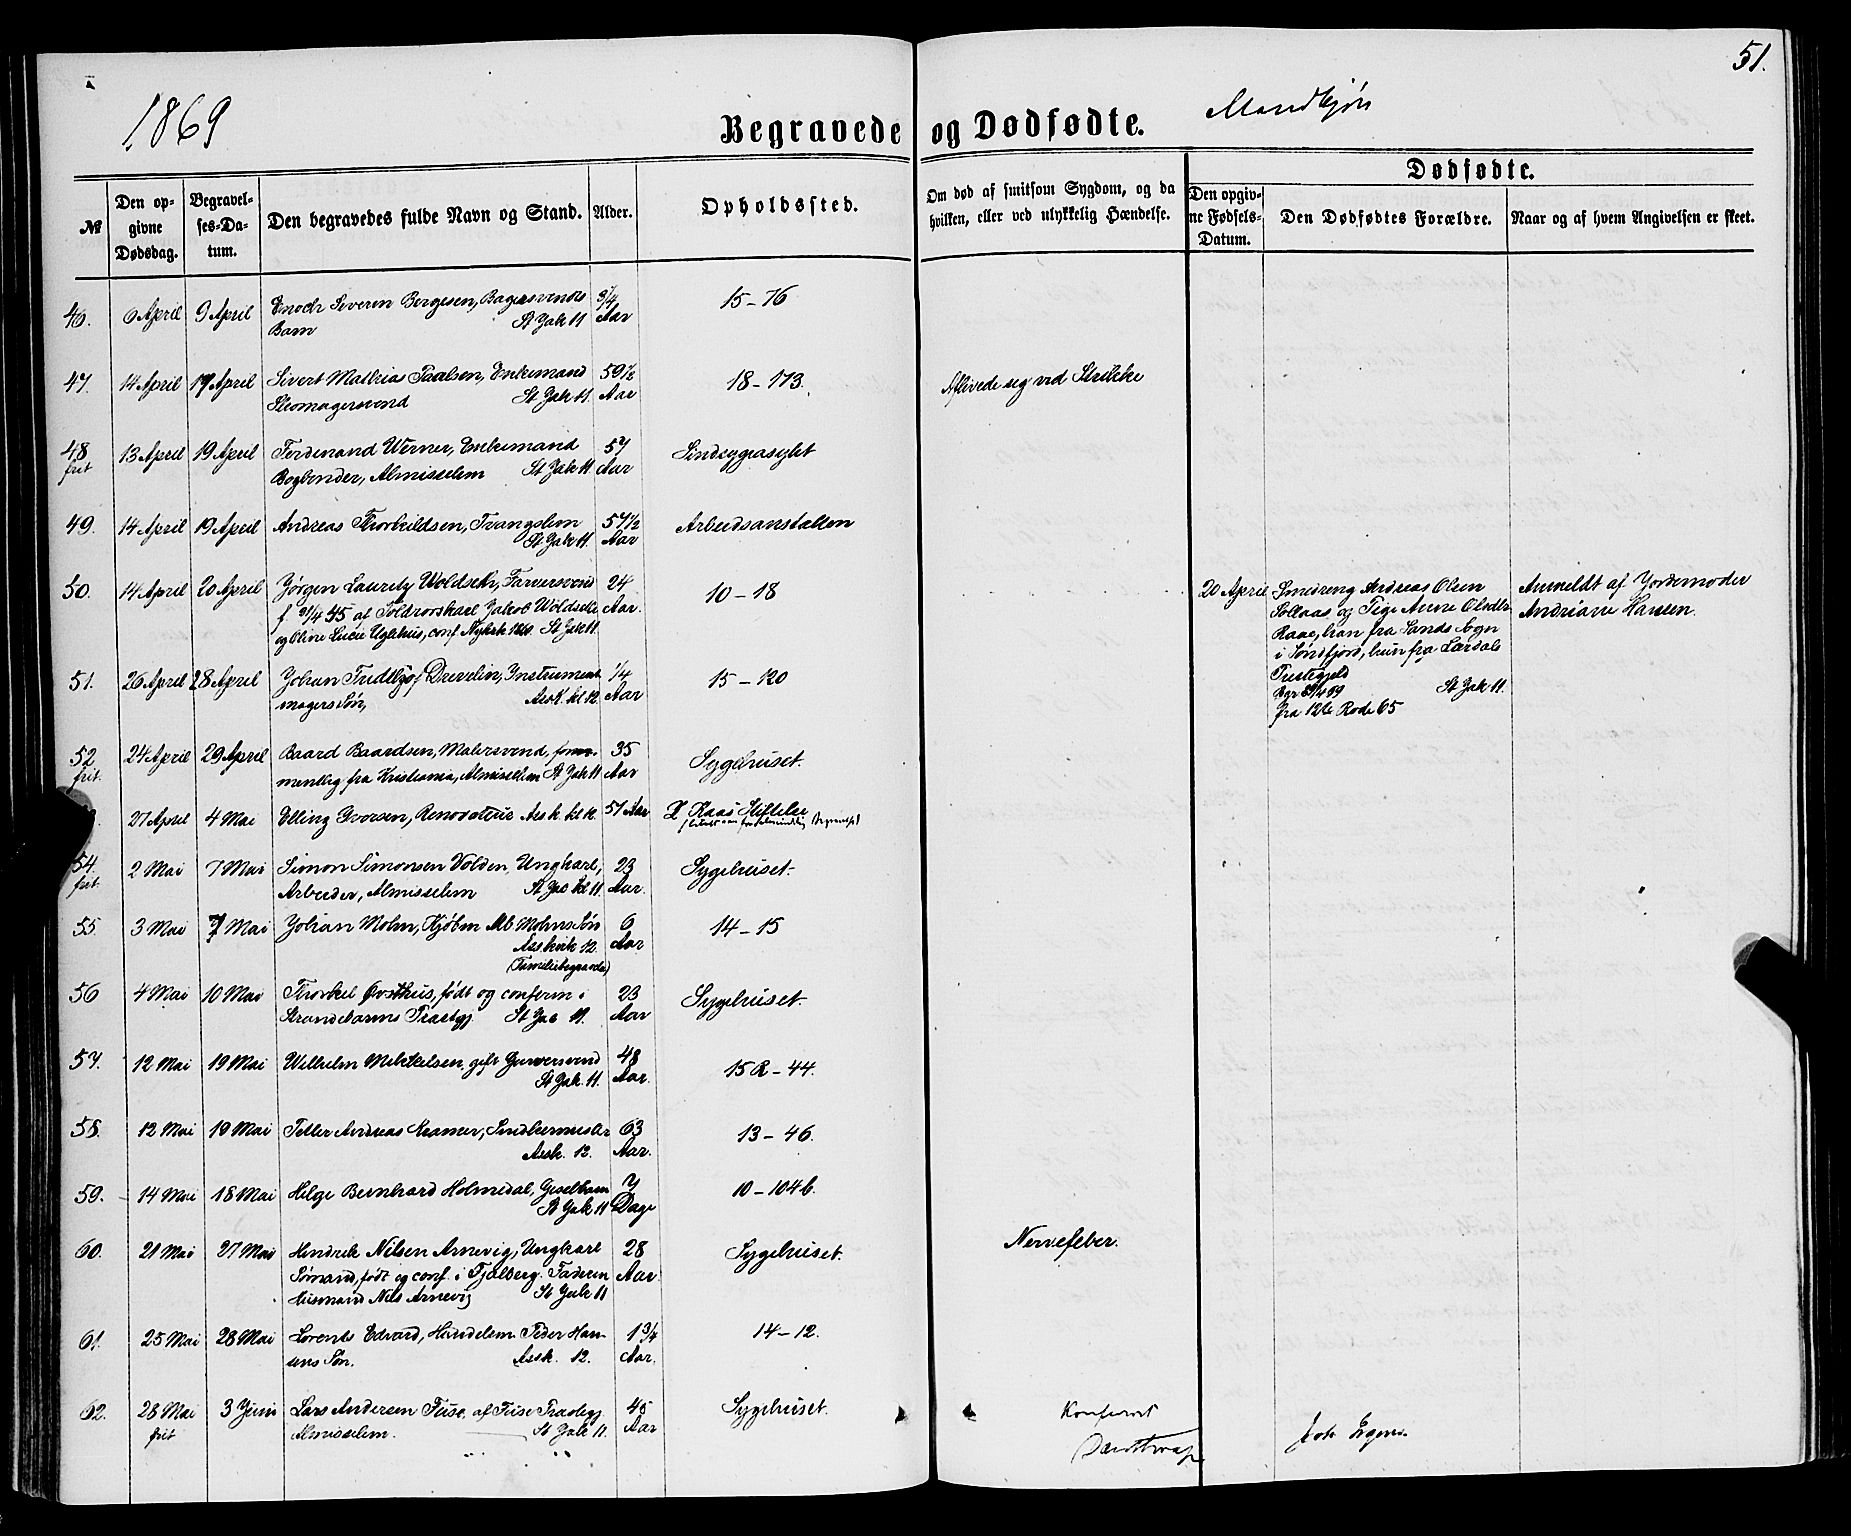 51.
1869
Begravede og Dødfødte.
Mandkjøn
№
Den opgivne Dødsdag.
Begravelses-Datum.
Den begravedes fulde Navn og Stand.
Alder.
Opholdssted.
Om død af smitsom Sygdom, og da hvilken, eller ved ulykkelig Hændelse.
Dødfødte.
Den opgivne Fødsels-Datum.
Den Dødfødtes Forældre.
Naar og af hvem Angivelsen er skeet.
46. 6 April 9 April Enoch Severin Børgesen, Bagersvends 3/4 15-76
Barn St Jak 11 Aar
47. 14 April 17 April Sivert Mathias Paulsen, Enkemand 59 1/2 18-173. Aflivede sig ved Strikke
Skomagersvend St Jak 11. Aar
48 13 April 19 April Ferdinand Werner, Enkemand 57 Sindsygeasylet
frit Bogbinder, Almisselem St Jak 11 Aar
49. 14 April 19 April Andreas Thorkildsen, Tvangslem 57 1/2 Arbeidsanstalten
St Jak 11. Aar
50. 14 April 20 April Jørgen Lauritz Woldseth, Farversvend 24 10-18
f 21/4 45 af Toldrorskarl Jakob Woldseth Aar.
og Oline Lucie Uglehus, conf Nykirk 1860. St Jak 11.
20 April Smedreng Andreas Olsen
Sollaas og Pige Anne Olsdtr
Raae, han fra Sands Sogn
i Søndfjord, hun fra Lærdals
Præstegjeld
St Jak 11.
fra 12te Rode 65
Anmeldt af Jordemoder
Andriane Hansen.
51. 26 April 28 April Johan Fridthjof Drevelin, Instrument 1/4 15-120
magers Søn, Assk. kl 12. Aar
52 24 April 29 April Baard Baardsen, Malersvend, formentlig 35 Sygehuset.
frit. fra Kristiania, Almisselem St Jak 11 Aar
27 April 4 Mai Elling Iversen, Renovateur Assk. kl 12. 57 Aar D Kaas Stiftelse
54. 2 Mai 7 Mai Simon Simonsen Volden, Ungkarl, 23 Sygehuset.
frit. Arbeider, Almisselem St Jac kl 11. Aar.
55 3 Mai 7 Mai Johan Mohn, Kjøbm Alb Mohns Søn 6 14-15
Asskirk 12. Aar
(Familiebegravelse)
56 4 Mai 10 Mai Thorkel Øvsthus, født og conferm i 23 Sygehuset.
Strandebarms Præstgj. St Jac 11. Aar
57. 12 Mai 19 Mai Wilhelm Mikkelsen gift Garversvend 48 15 R-44.
St Jak. 11. Aar.
58. 12 Mai 19 Mai Petter Andreas Kramer, Snedkermester 63 13-46.
Assk. 12. Aar.
59. 14 Mai 18 Mai Helge Bernhard Holmedal, Geselbarn 7 10-104b.
St Jak 11 Dage
60. 21 Mai 27 Mai Hendrik Nilsen Arnevig, Ungkarl 28 Sygehuset. Nervefeber.
Sømand, født og conf. i Fjelberg. Faderen Aar.
Husmand Nils Arnevig St Jak 11
61. 25 Mai 28 Mai Lorents Edvard, Hindelem Peder Han- 1 3/4 14-12.
sens Søn. Assk. 12. Aar.
62. 28 Mai 3 Juni Lars Andersen Fuse, af Fuse Præstegj. 45 Sygehuset.
frit Almisselem. St Jak 11. Aar
Konfereret